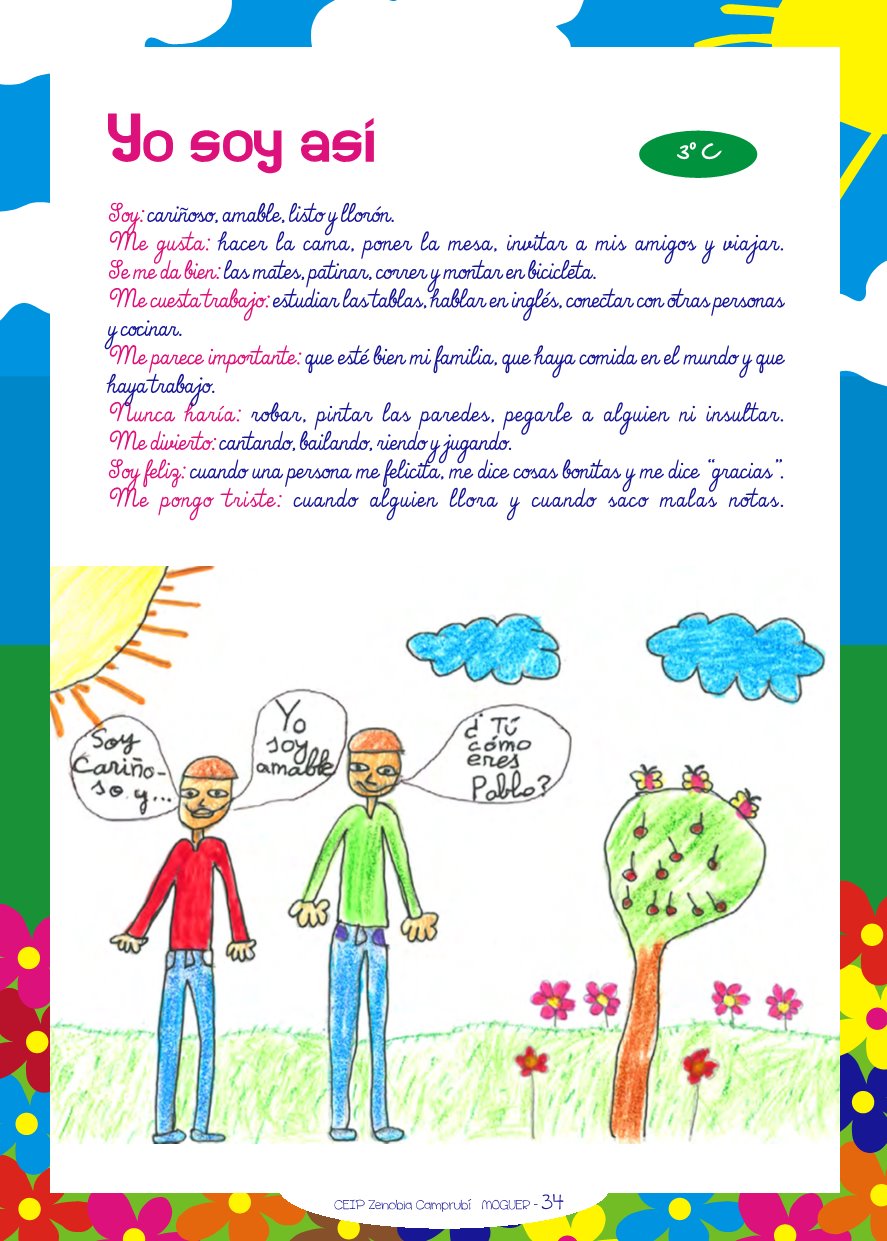 Yo soy así
3º C
Soy: cariñoso, amable, listo y llorón.
Me gusta: hacer la cama, poner la mesa, invitar a mis amigos y viajar.
Se me da bien: las mates, patinar, correr y montar en bicicleta.
Me cuesta trabajo: estudiar las tablas, hablar en inglés, conectar con otras personas
y cocinar.
Me parece importante: que esté bien mi familia, que haya comida en el mundo y que
haya trabajo.
Nunca haría: robar, pintar las paredes, pegarle a alguien ni insultar.
Me divierto: cantando, bailando, riendo y jugando.
Soy feliz: cuando una persona me felicita, me dice cosas bonitas y me dice “gracias”.
Me pongo triste: cuando alguien llora y cuando saco malas notas.
Soy
Cariño-
so y...
Yo
soy
amable
¿Tú
cómo
eres
Pablo?
CEIP Zenobia Camprubí MOGUER - 34